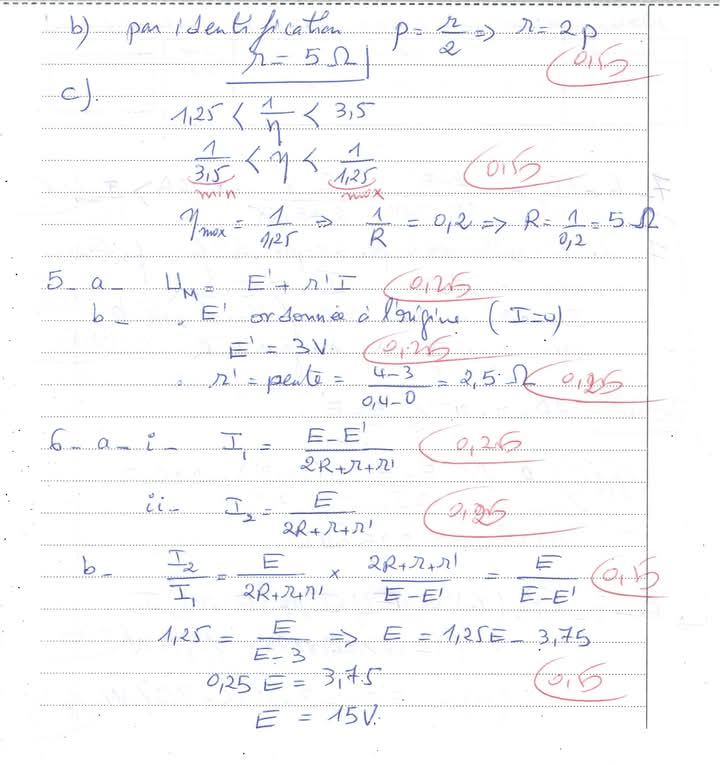 b) par identification p = r/2 => r = 2p
r = 5 Ω
0,5
c).
1,25 < 1/η < 3,5
1/3,5 < η < 1/1,25
min max
0,5
η max = 1/1,25 => 1/R = 0,2 => R = 1/0,2 = 5 Ω
5_ a_ U_M = E' + r' I 0,25
b_ . E' ordonnée à l'origine (I=0)
E' = 3V. 0,25
. r' = pente = (4-3)/(0,4-0) = 2,5 Ω 0,25
6_ a_ i_ I₁ = (E-E')/(2R+r+r') 0,25
ii_ I₂ = E/(2R+r+r') 0,25
b_ I₂/I₁ = E/(2R+r+r') × (2R+r+r')/(E-E') = E/(E-E') 0,5
1,25 = E/(E-3) => E = 1,25E - 3,75
0,25 E = 3,75 0,5
E = 15V.